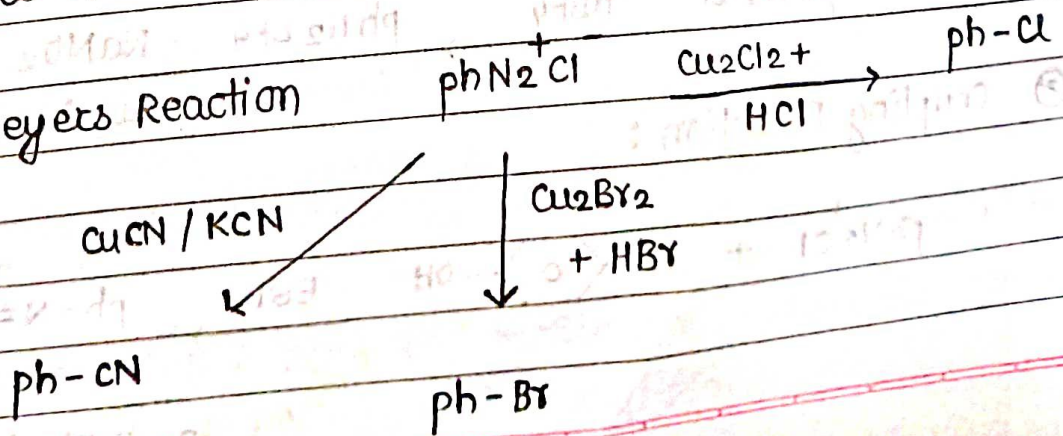 eyers Reaction phN2+Cl- Cu2Cl2+ ph-Cl
HCl
CuCN / KCN Cu2Br2
+ HBr
ph-CN
ph-Br